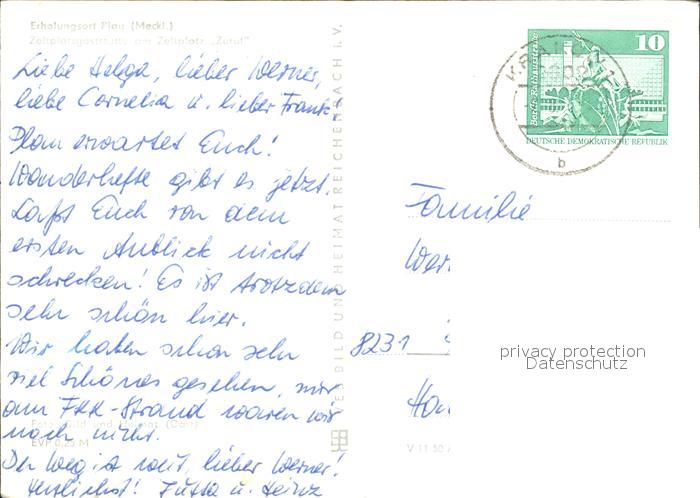 Erholungsort Plau (Meckl.)
Zeltplatzgaststätte am Zeltplatz „Zuruf"
Liebe Helga, lieber Werner,
liebe Cornelia u. lieber Frank!
Plau erwartet Euch!
Wanderhefte gibt es jetzt.
Laßt Euch von dem
ersten Anblick nicht
schrecken! Es ist trotzdem
sehr schön hier.
Wir haben schon sehr
viel Schönes gesehen, nur
am FKK-Strand waren wir
noch nicht.
Foto: Bild und Heimat
EVP 0,25 M
Der Weg ist weit, lieber Werner!
Herzlichst! Jutta u. Heinz
BILD UND HEIMAT REICHENBACH I. V.
10
Berlin-Rathausstraße
DEUTSCHE DEMOKRATISCHE REPUBLIK
b
Familie
Wer
8231
privacy protection
Datenschutz
V 11 50